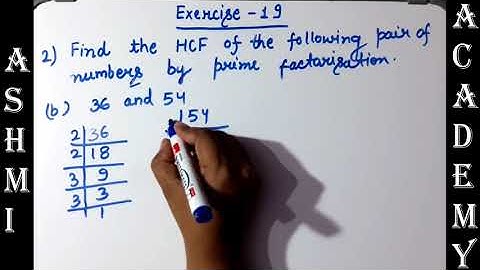 Exercise - 19
2) Find the HCF of the following pair of
numbers by prime factorisation.
(b) 36 and 54
2 36
2 18
3 9
3 3
1
54
ASHMI
ACADEMY